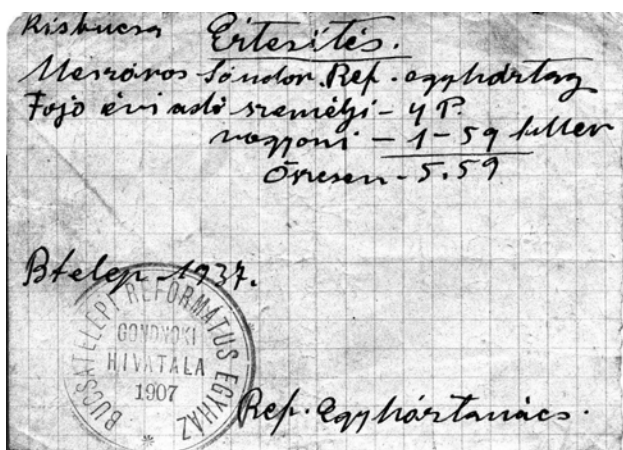 Kisbucsa Értesítés.
Meszáros Sándor. Ref. egyháztag
Fojo évi adó személyi - 4 P.
vagyoni - 1-59 filler
Összesen - 5.59
Btelep 1937.
BUCSATELEPI REFORMATUS EGYHÁZ
GONDNOKI
HIVATALA
1907
Ref. Egyháztanács.